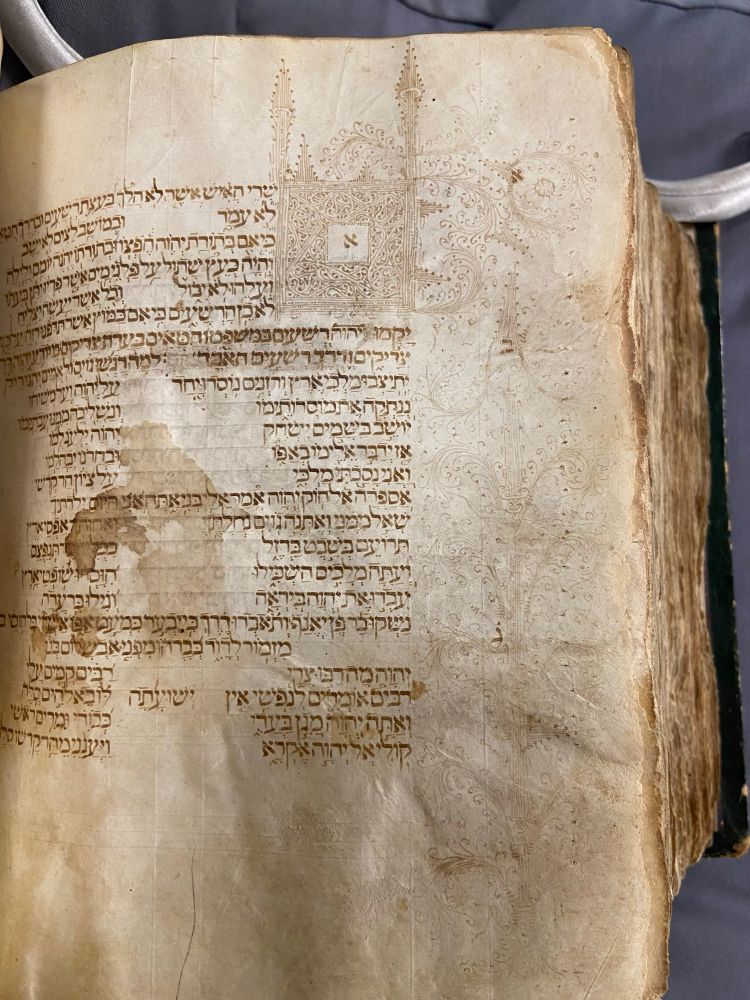 א
א
שרי האיש אשר לא הלך בעצת רשעים ובדרך חטאים
לא עמד ובמושב לצים לא ישב
כי אם בתורת יהוה חפצו ובתורתו יהגה יומם ולילה
והיה כעץ שתול על פלגי מים אשר פריו יתן בעתו
ועלהו לא יבול וכל אשר יעשה יצליח
לא כן הרשעים כי אם כמוץ אשר תדפנו רוח
יקמו רשעים במשפט וחטאים בעדת צדיקים כי יודע יהוה
ב
צדיקים ודרך רשעים תאבד למה רגשו גוים ולאמים יהגו ריק
יתיצבו מלכי ארץ ורוזנים נוסדו יחד על יהוה ועל משיחו
ננתקה את מוסרותימו ונשליכה ממנו עבתימו
יושב בשמים ישחק יהוה ילעג למו
אז ידבר אלימו באפו ובחרונו יבהלמו
ואני נסכתי מלכי על ציון הר קדשי
אספרה אל חוק יהוה אמר אלי בני אתה אני היום ילדתיך
שאל ממני ואתנה גוים נחלתך אפסי ארץ
תרועם בשבט ברזל תנפצם
ועתה מלכים השכילו הוסרו שופטי ארץ
עבדו את יהוה ביראה וגילו ברעדה
נשקו בר פן יאנף ותאבדו דרך כי יבער כמעט אפו
ג
מזמור לדוד בברחו מפני אבשלום בנו
יהוה מה רבו צרי רבים קמים עלי
רבים אומרים לנפשי אין ישועתה לו באלהים סלה
ואתה יהוה מגן בעדי כבודי ומרים ראשי
קולי אל יהוה אקרא ויענני מהר קדשו סלה